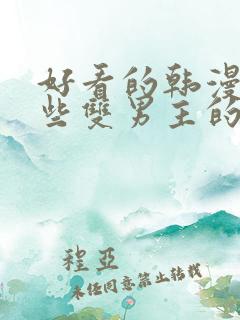 好看的韩漫
些双男主的
程亞
未经同意禁止转载